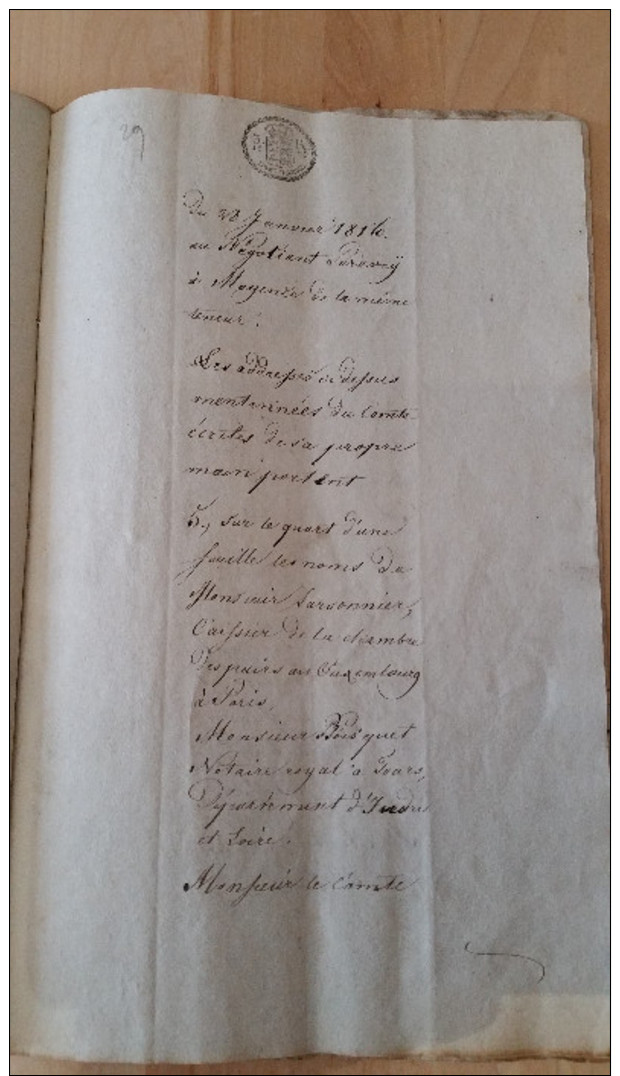 29
Du 28 Janvier 1816.
au Négotiant
à Mayence de la même
teneur.
Les addresses ci dessus
mentionnées du Comte
écrites de sa propre
main portent
5., sur le quart d'une
feuille les noms de
Monsieur
Caissier de la chambre
des pairs au Luxembourg
à Paris,
Monsieur Bousquet
Notaire royal à Tours,
Département d'Indre
et Loire.
Monsieur le Comte